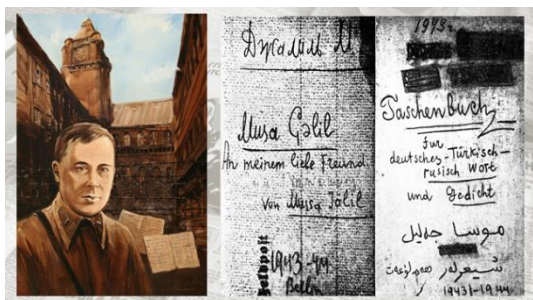 Джалиль М.
Musa Gəlil
An meinem liebe Freund
von Musa Jalil
Feldpost
1943-44
Berlin
1943 г.
Taschenbuch
für
deutsches-Türkisch-
rusisch Wort
und Gedicht
موسا جەلیل
شیعرلەر
1943-1944